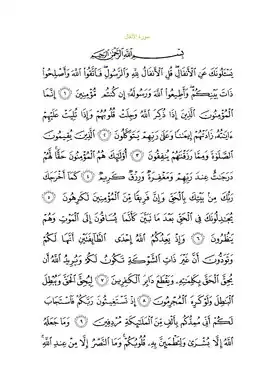 سورة الأنفال
بِسْمِ ٱللَّهِ ٱلرَّحْمَٰنِ ٱلرَّحِيمِ
يَسْـَٔلُونَكَ عَنِ ٱلْأَنفَالِ ۖ قُلِ ٱلْأَنفَالُ لِلَّهِ وَٱلرَّسُولِ ۖ فَٱتَّقُوا۟ ٱللَّهَ وَأَصْلِحُوا۟
ذَاتَ بَيْنِكُمْ ۖ وَأَطِيعُوا۟ ٱللَّهَ وَرَسُولَهُۥٓ إِن كُنتُم مُّؤْمِنِينَ ١ إِنَّمَا
ٱلْمُؤْمِنُونَ ٱلَّذِينَ إِذَا ذُكِرَ ٱللَّهُ وَجِلَتْ قُلُوبُهُمْ وَإِذَا تُلِيَتْ عَلَيْهِمْ
ءَايَٰتُهُۥ زَادَتْهُمْ إِيمَٰنًا وَعَلَىٰ رَبِّهِمْ يَتَوَكَّلُونَ ٢ ٱلَّذِينَ يُقِيمُونَ
ٱلصَّلَوٰةَ وَمِمَّا رَزَقْنَٰهُمْ يُنفِقُونَ ٣ أُو۟لَٰٓئِكَ هُمُ ٱلْمُؤْمِنُونَ حَقًّا ۚ لَّهُمْ
دَرَجَٰتٌ عِندَ رَبِّهِمْ وَمَغْفِرَةٌ وَرِزْقٌ كَرِيمٌ ٤ كَمَآ أَخْرَجَكَ
رَبُّكَ مِنۢ بَيْتِكَ بِٱلْحَقِّ وَإِنَّ فَرِيقًا مِّنَ ٱلْمُؤْمِنِينَ لَكَٰرِهُونَ ٥
يُجَٰدِلُونَكَ فِى ٱلْحَقِّ بَعْدَ مَا تَبَيَّنَ كَأَنَّمَا يُسَاقُونَ إِلَى ٱلْمَوْتِ وَهُمْ
يَنظُرُونَ ٦ وَإِذْ يَعِدُكُمُ ٱللَّهُ إِحْدَى ٱلطَّآئِفَتَيْنِ أَنَّهَا لَكُمْ
وَتَوَدُّونَ أَنَّ غَيْرَ ذَاتِ ٱلشَّوْكَةِ تَكُونُ لَكُمْ وَيُرِيدُ ٱللَّهُ أَن
يُحِقَّ ٱلْحَقَّ بِكَلِمَٰتِهِۦ وَيَقْطَعَ دَابِرَ ٱلْكَٰفِرِينَ ٧ لِيُحِقَّ ٱلْحَقَّ وَيُبْطِلَ
ٱلْبَٰطِلَ وَلَوْ كَرِهَ ٱلْمُجْرِمُونَ ٨ إِذْ تَسْتَغِيثُونَ رَبَّكُمْ فَٱسْتَجَابَ
لَكُمْ أَنِّى مُمِدُّكُم بِأَلْفٍ مِّنَ ٱلْمَلَٰٓئِكَةِ مُرْدِفِينَ ٩ وَمَا جَعَلَهُ
ٱللَّهُ إِلَّا بُشْرَىٰ وَلِتَطْمَئِنَّ بِهِۦ قُلُوبُكُمْ ۚ وَمَا ٱلنَّصْرُ إِلَّا مِنْ عِندِ ٱللَّهِ ۚ